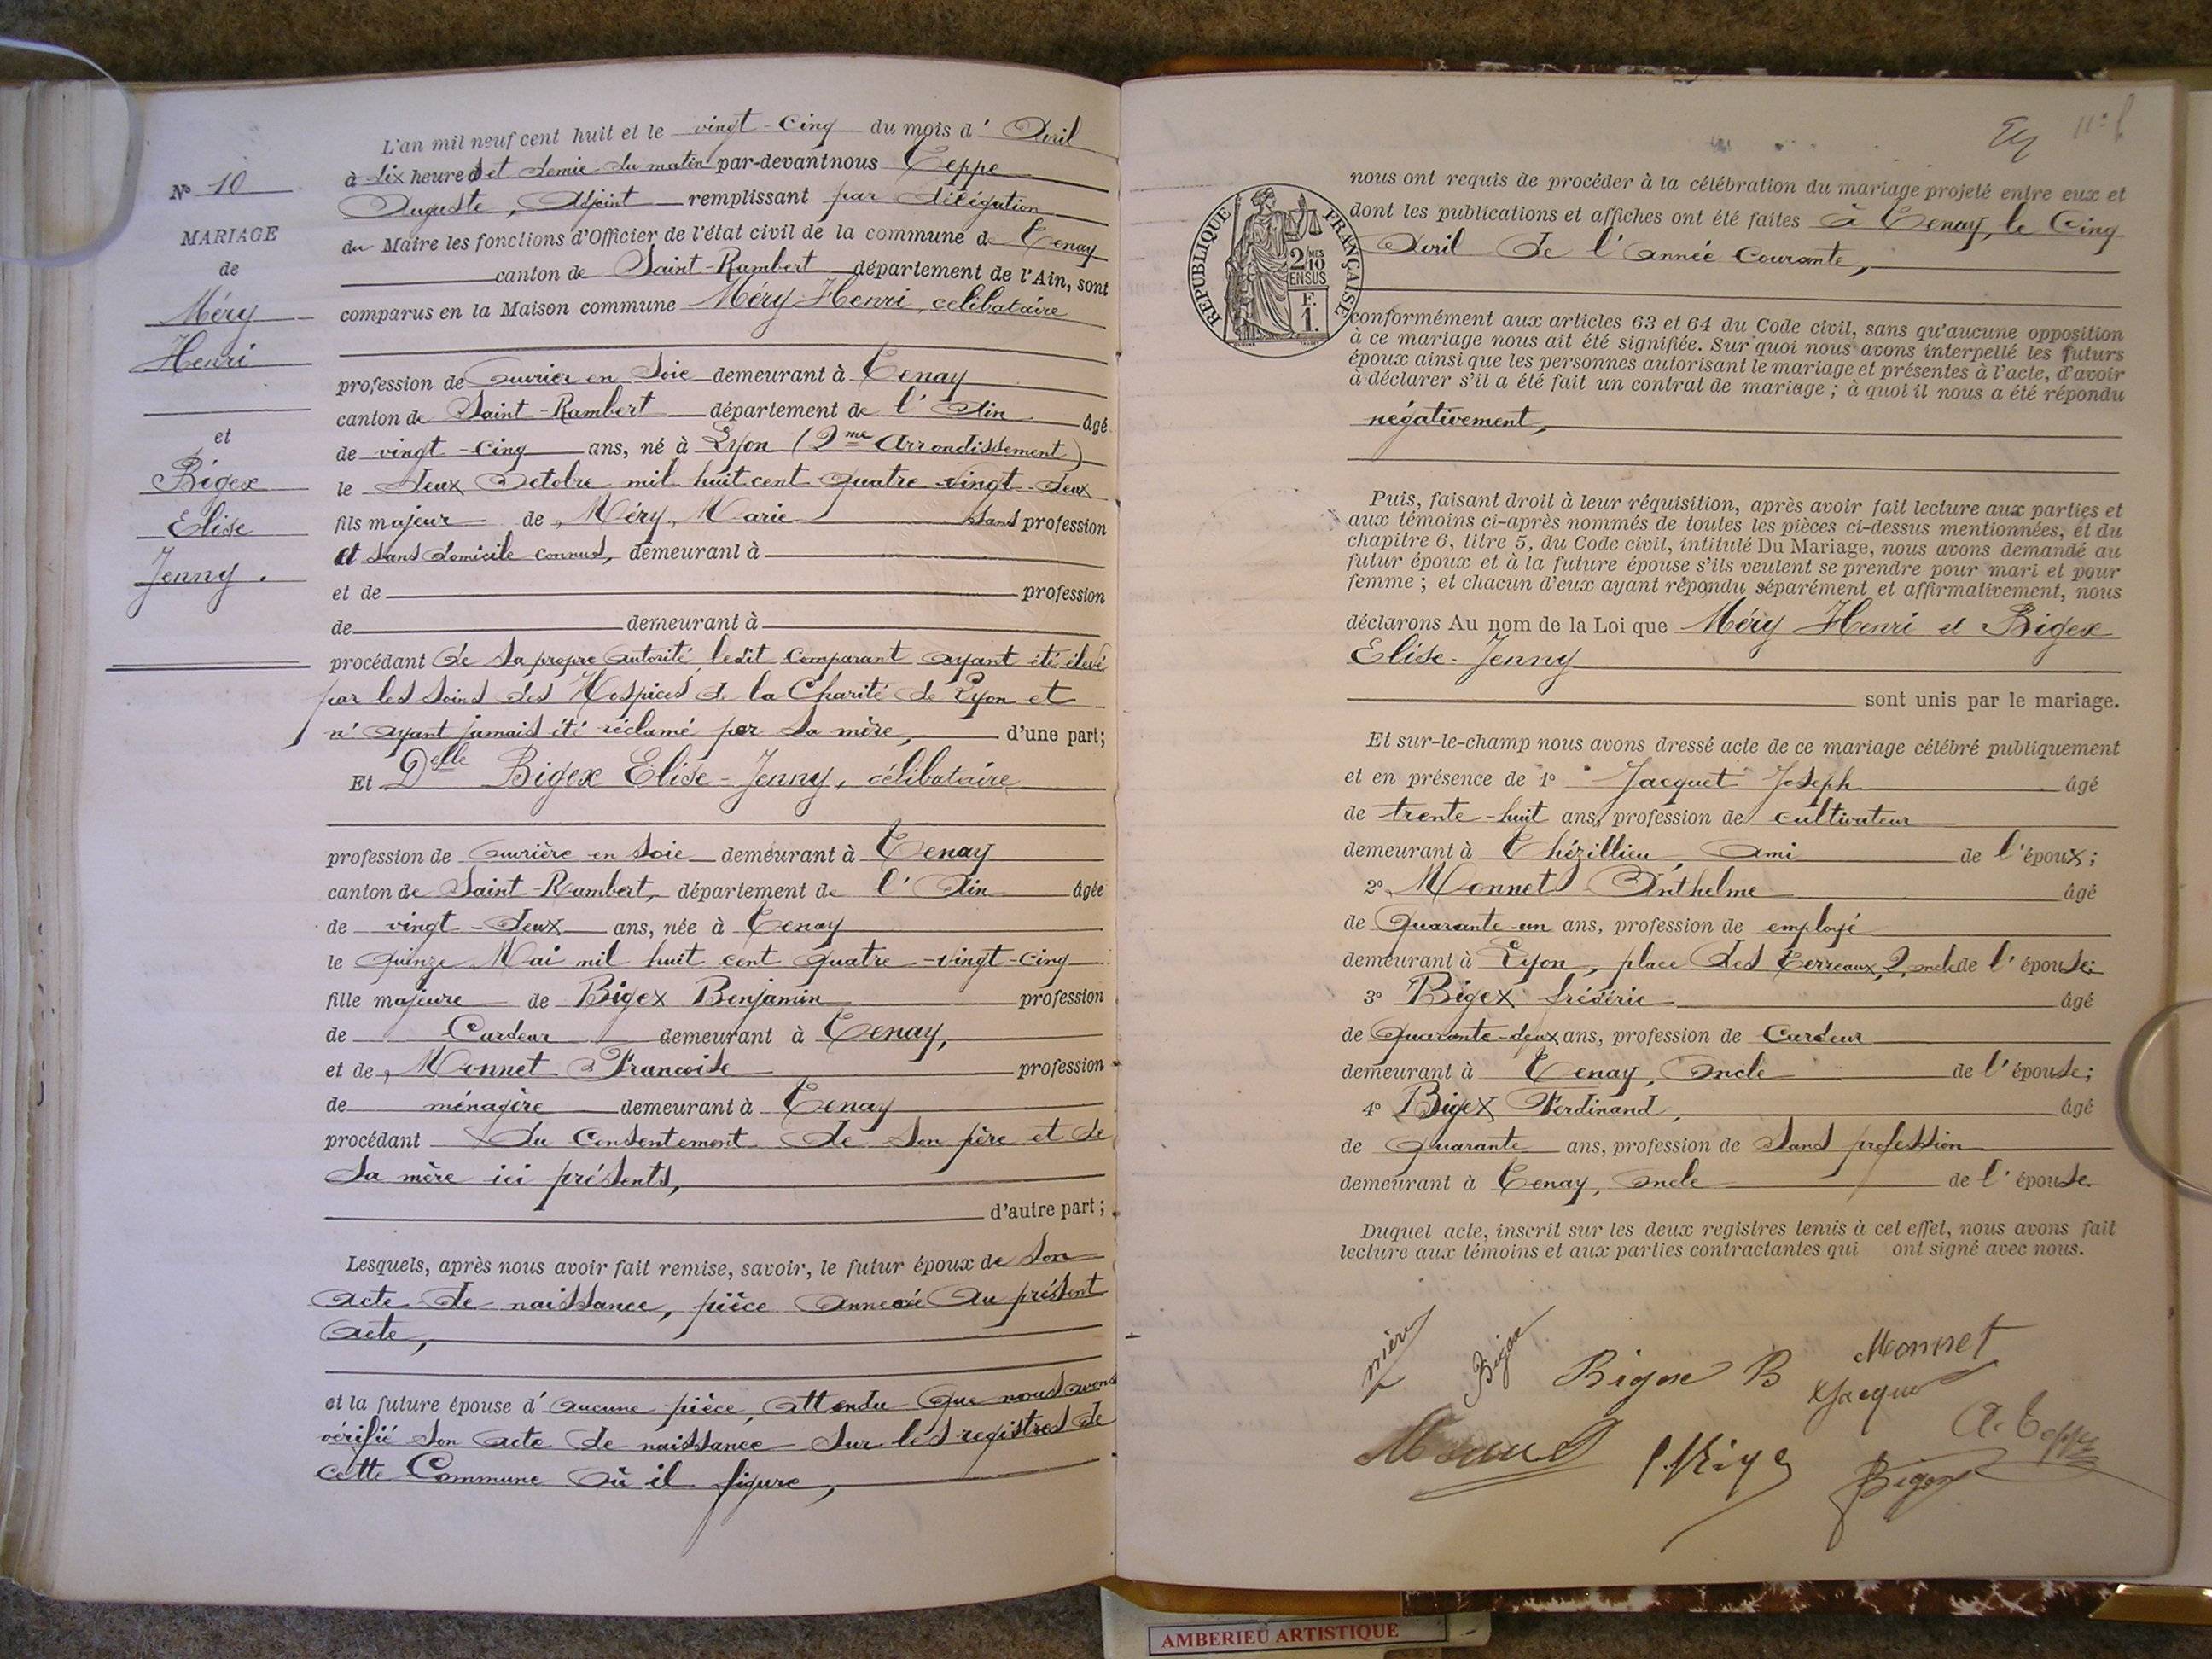 N° 10
MARIAGE
de
Méry
Henri
et
Bigex
Elise
Jenny.
L'an mil neuf cent huit et le vingt-cinq du mois d'Avril
à dix heures et demie du matin par-devant nous Teppe
Auguste, Adjoint remplissant par délégation
du Maire les fonctions d'Officier de l'état civil de la commune de Tenay
canton de Saint-Rambert département de l'Ain, sont
comparus en la Maison commune Méry Henri, célibataire
profession de ouvrier en soie demeurant à Tenay
canton de Saint-Rambert département de l'Ain âgé
de vingt-cinq ans, né à Lyon (2me Arrondissement)
le deux Octobre mil huit cent quatre-vingt-deux
fils majeur de Méry Marie sans profession
et sans domicile connus, demeurant à
et de profession
de demeurant à
procédant de sa propre autorité ledit comparant ayant été élevé
par les soins des Hospices de la Charité de Lyon et
n'ayant jamais été réclamé par sa mère, d'une part;
Et Delle Bigex Elise-Jenny, célibataire
profession de ouvrière en soie demeurant à Tenay
canton de Saint-Rambert, département de l'Ain âgée
de vingt-deux ans, née à Tenay
le quinze Mai mil huit cent quatre-vingt-cinq
fille majeure de Bigex Benjamin profession
de Cardeur demeurant à Tenay,
et de Monnet Françoise profession
de ménagère demeurant à Tenay
procédant du consentement de son père et de
sa mère ici présents,
d'autre part;
Lesquels, après nous avoir fait remise, savoir, le futur époux de son
acte de naissance, pièce annexée au présent
acte,
et la future épouse d'aucune pièce, attendu que nous avons
vérifié son acte de naissance sur les registres de
cette Commune où il figure,
nous ont requis de procéder à la célébration du mariage projeté entre eux et
dont les publications et affiches ont été faites à Tenay, le cinq
Avril de l'année courante,
RÉPUBLIQUE FRANÇAISE
2 MES
10
EN SUS
F.
1.
conformément aux articles 63 et 64 du Code civil, sans qu'aucune opposition
à ce mariage nous ait été signifiée. Sur quoi nous avons interpellé les futurs
époux ainsi que les personnes autorisant le mariage et présentes à l'acte, d'avoir
à déclarer s'il a été fait un contrat de mariage ; à quoi il nous a été répondu
négativement,
Puis, faisant droit à leur réquisition, après avoir fait lecture aux parties et
aux témoins ci-après nommés de toutes les pièces ci-dessus mentionnées, et du
chapitre 6, titre 5, du Code civil, intitulé Du Mariage, nous avons demandé au
futur époux et à la future épouse s'ils veulent se prendre pour mari et pour
femme ; et chacun d'eux ayant répondu séparément et affirmativement, nous
déclarons Au nom de la Loi que Méry Henri et Bigex
Elise-Jenny
sont unis par le mariage.
Et sur-le-champ nous avons dressé acte de ce mariage célébré publiquement
et en présence de 1° Jacquet Joseph âgé
de trente-huit ans, profession de cultivateur
demeurant à Thézillieu, ami de l'époux;
2° Monnet Anthelme âgé
de quarante-un ans, profession de employé
demeurant à Lyon, place des Terreaux, 2, oncle de l'épouse;
3° Bigex frédéric âgé
de quarante-deux ans, profession de Cardeur
demeurant à Tenay, oncle de l'épouse;
4° Bigex Ferdinand, âgé
de quarante ans, profession de sans profession
demeurant à Tenay, oncle de l'épouse.
Duquel acte, inscrit sur les deux registres tenus à cet effet, nous avons fait
lecture aux témoins et aux parties contractantes qui ont signé avec nous.
Bigex
Bigex B
Monnet
Jacquet
A. Teppe
Bigex
AMBERIEU ARTISTIQUE